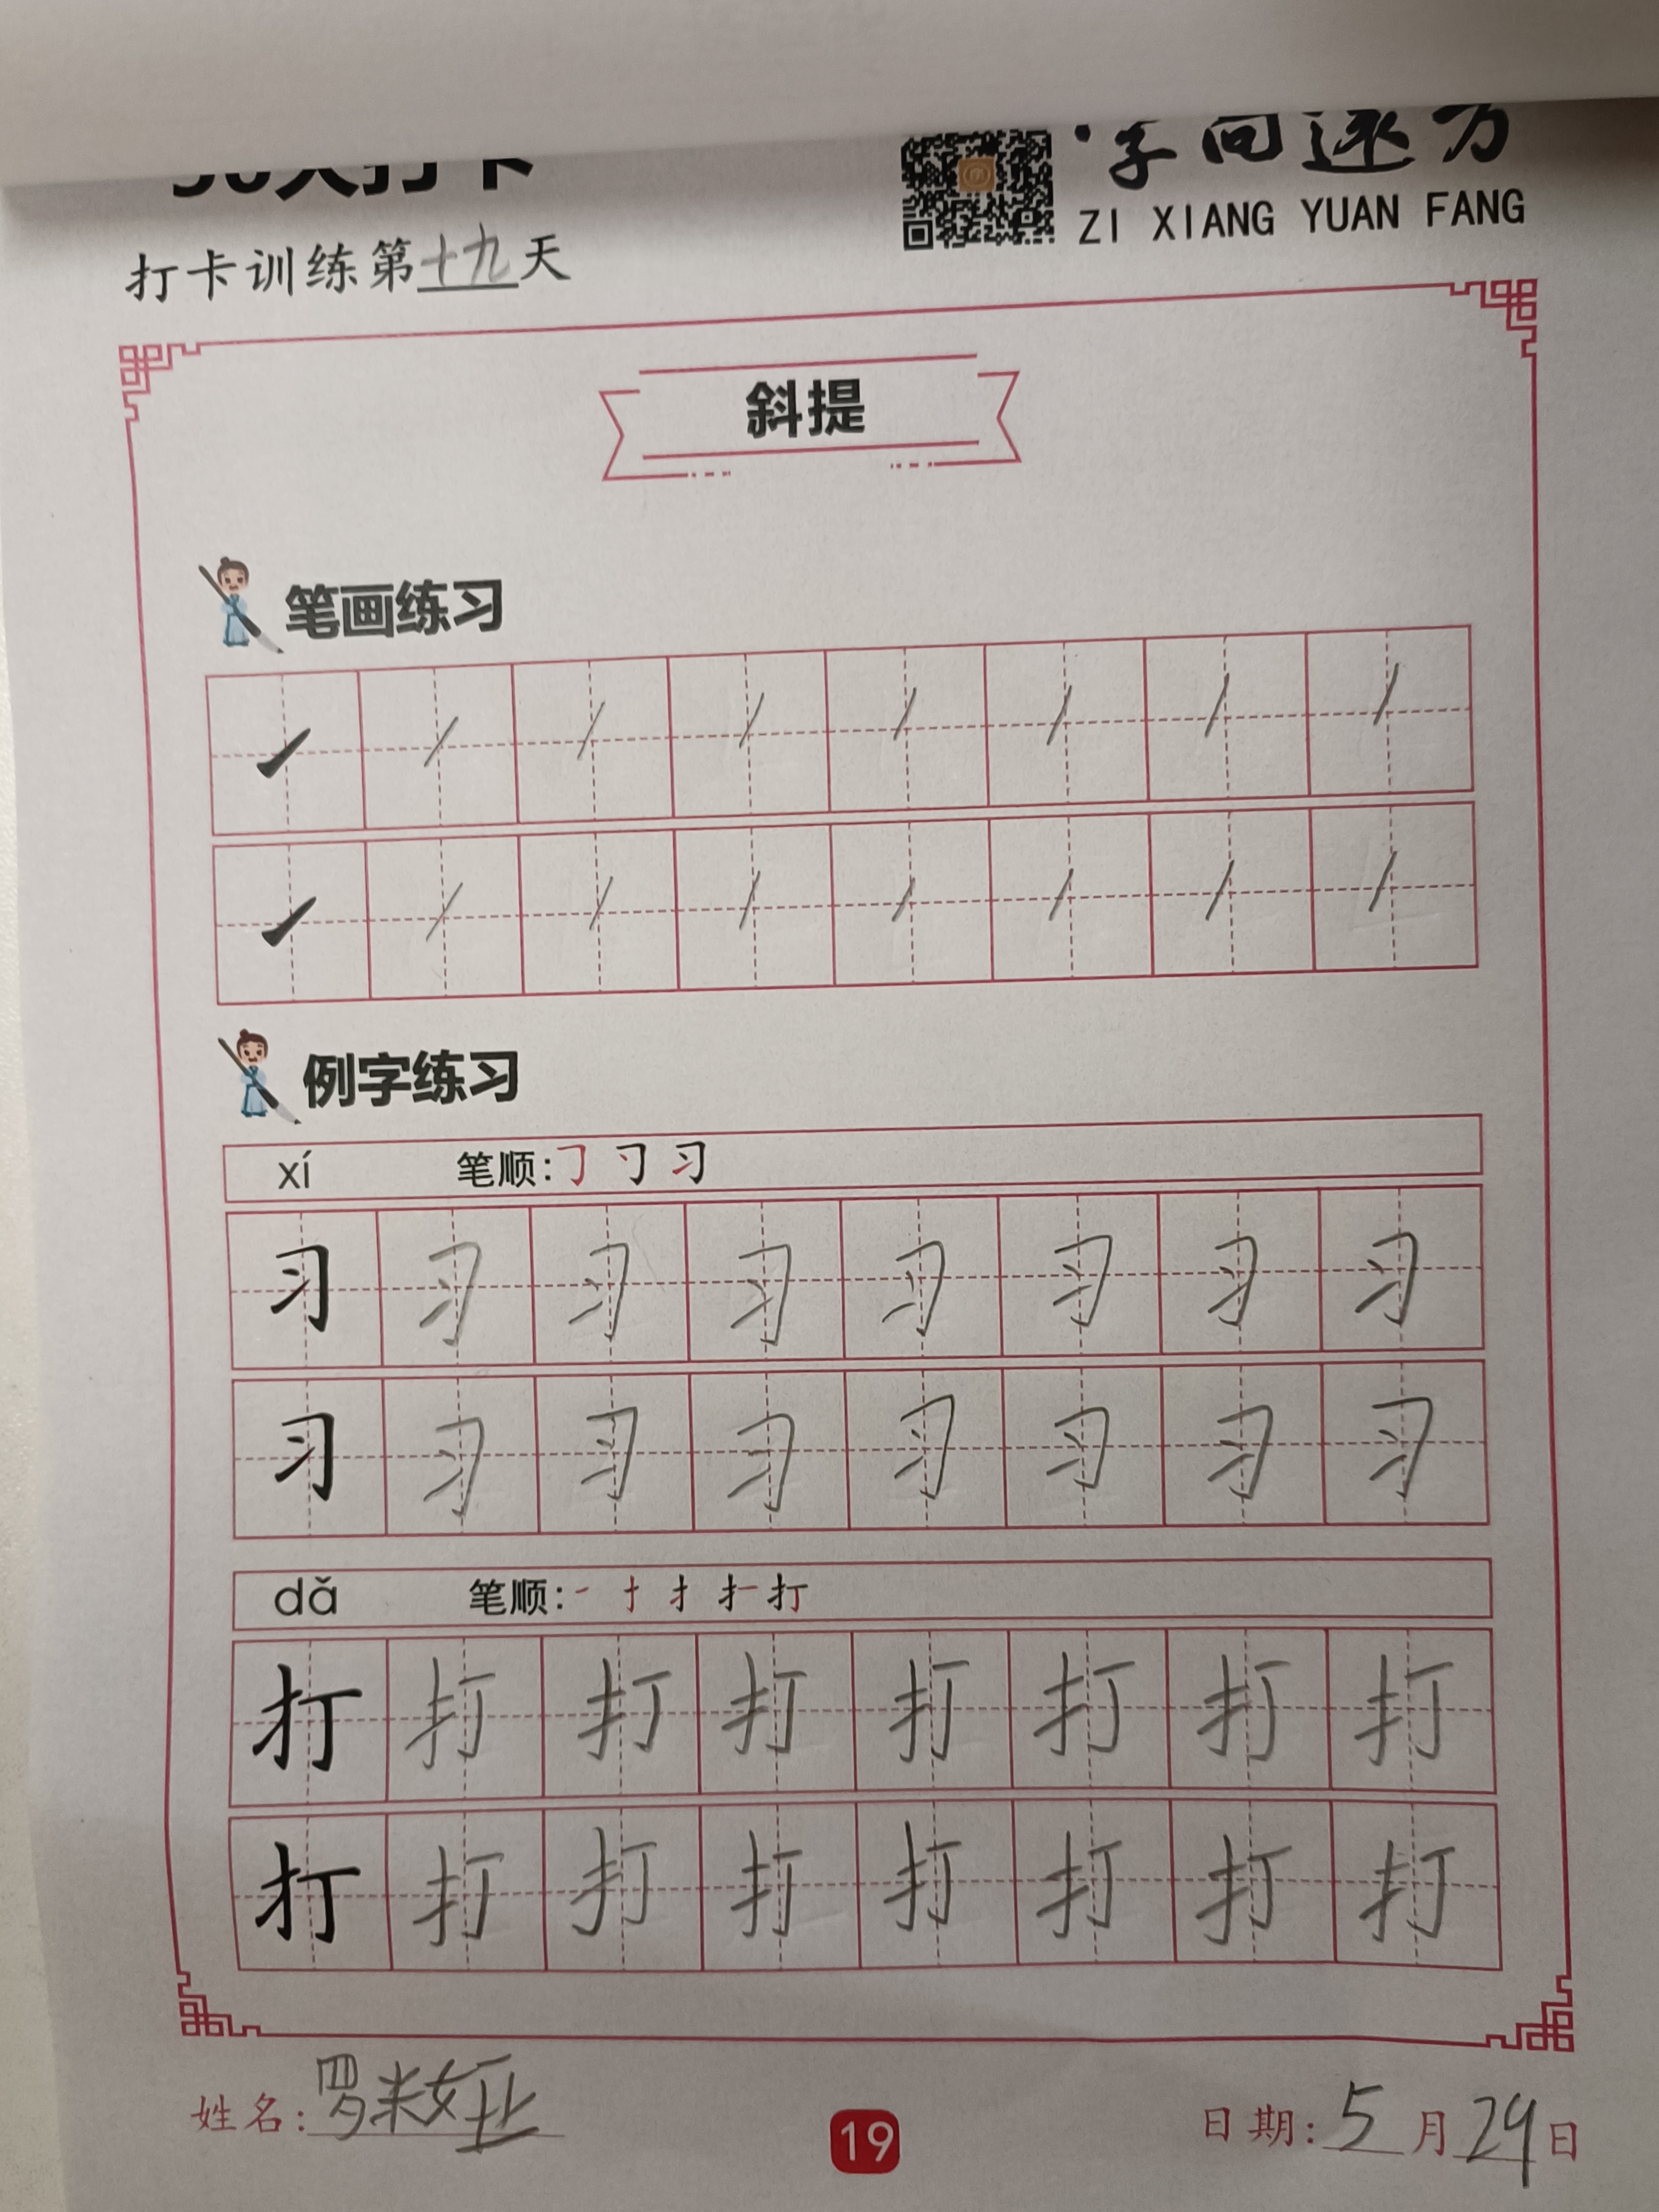 打卡
字向远方
ZI XIANG YUAN FANG
打卡训练第十九天
斜提
笔画练习
例字练习
xí 笔顺: 习
习 习 习 习 习 习 习 习
习 习 习 习 习 习 习 习
dǎ 笔顺: 一 十 扌 打
打 打 打 打 打 打 打 打
打 打 打 打 打 打 打 打
姓名: 罗
19
日期: 5月29日